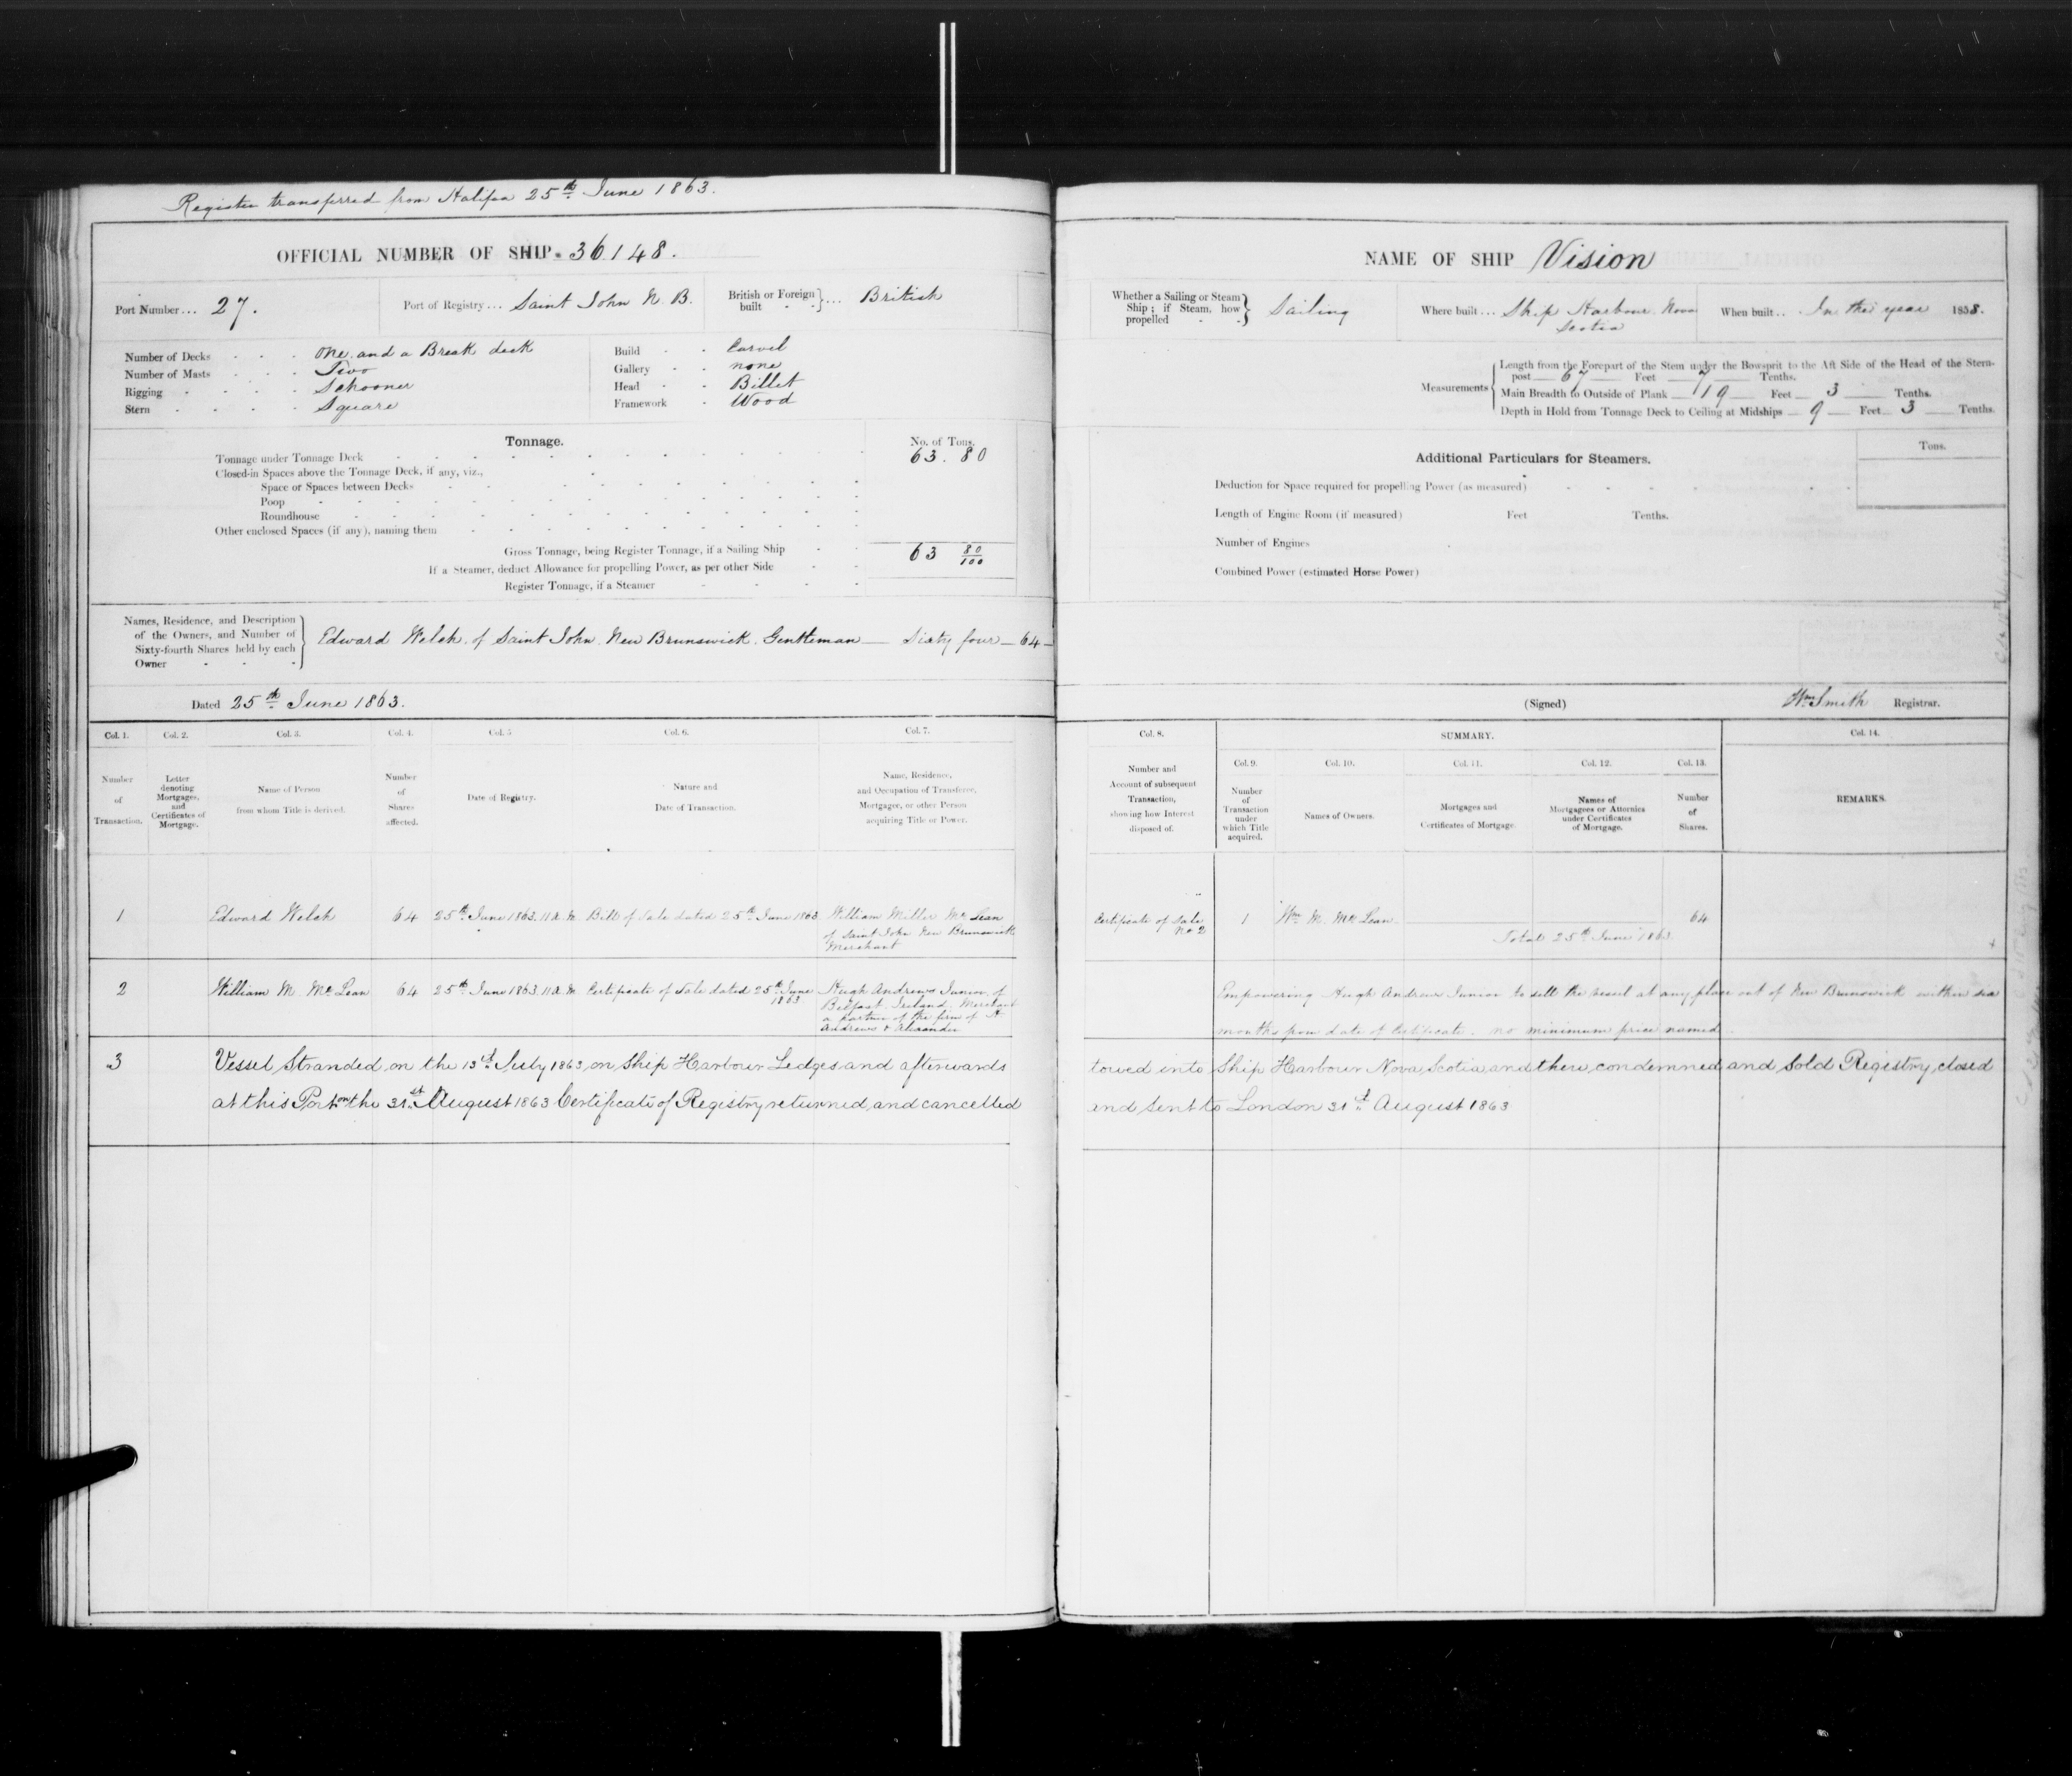 Register transferred from Halifax 25th June 1863.
OFFICIAL NUMBER OF SHIP. 36148.
Port Number... 27.
Port of Registry... Saint John N. B.
British or Foreign built } ... British
Number of Decks - - - One and a Break deck
Number of Masts - - - Two
Rigging - - - - Schooner
Stern - - - - Square
Build - - Carvel
Gallery - - none
Head - - Billet
Framework - Wood
Tonnage.
No. of Tons.
Tonnage under Tonnage Deck 63. 80
Closed-in Spaces above the Tonnage Deck, if any, viz.,
Space or Spaces between Decks
Poop
Roundhouse
Other enclosed Spaces (if any), naming them
Gross Tonnage, being Register Tonnage, if a Sailing Ship 63 80/100
If a Steamer, deduct Allowance for propelling Power, as per other Side
Register Tonnage, if a Steamer
Names, Residence, and Description
of the Owners, and Number of
Sixty-fourth Shares held by each
Owner
Edward Welch of Saint John New Brunswick Gentleman — Sixty four — 64 —
Dated 25th June 1863.
Col. 1. Col. 2. Col. 3. Col. 4. Col. 5 Col. 6. Col. 7.
Number of Transaction.
Letter denoting Mortgages, and Certificates of Mortgage.
Name of Person from whom Title is derived.
Number of Shares affected.
Date of Registry.
Nature and Date of Transaction.
Name, Residence, and Occupation of Transferee, Mortgagee, or other Person acquiring Title or Power.
1 Edward Welch 64 25th June 1863. 11 A.M. Bill of Sale dated 25th June 1863 William Miller McLean
of Saint John New Brunswick
Merchant
2 William M. McLean 64 25th June 1863. 11 A.M. Certificate of Sale dated 25th June 1863 Hugh Andrews Junior of
Belfast Ireland, Merchant
a partner of the firm of H
Andrews & Alexander
3 Vessel Stranded on the 13th July 1863 on Ship Harbour Ledges and afterwards
at this Port on the 31st August 1863 Certificate of Registry returned, and cancelled
NAME OF SHIP Vision
Whether a Sailing or Steam
Ship; if Steam, how
propelled
Sailing
Where built... Ship Harbour Nova
Scotia
When built.. In the year 1858.
Measurements
Length from the Forepart of the Stem under the Bowsprit to the Aft Side of the Head of the Stern-
post — 67 — Feet — 7 — Tenths.
Main Breadth to Outside of Plank — 19 — Feet — 3 — Tenths.
Depth in Hold from Tonnage Deck to Ceiling at Midships — 9 — Feet — 3 — Tenths.
Additional Particulars for Steamers.
Tons.
Deduction for Space required for propelling Power (as measured)
Length of Engine Room (if measured) Feet Tenths.
Number of Engines
Combined Power (estimated Horse Power)
(Signed) Wm Smith Registrar.
Col. 8. SUMMARY. Col. 14.
Col. 9. Col. 10. Col. 11. Col. 12. Col. 13.
Number and Account of subsequent Transaction, showing how Interest disposed of.
Number of Transaction under which Title acquired.
Names of Owners.
Mortgages and Certificates of Mortgage.
Names of Mortgagees or Attornies under Certificates of Mortgage.
Number of Shares.
REMARKS.
Certificate of Sale
No 2
1 Wm M. McLean 64
Total 25th June 1863
Empowering Hugh Andrews Junior to sell the vessel at any place out of New Brunswick within six
months from date of Certificate. no minimum price named.
towed into Ship Harbour Nova Scotia and there, condemned and Sold Registry, closed
and Sent to London 31st August 1863